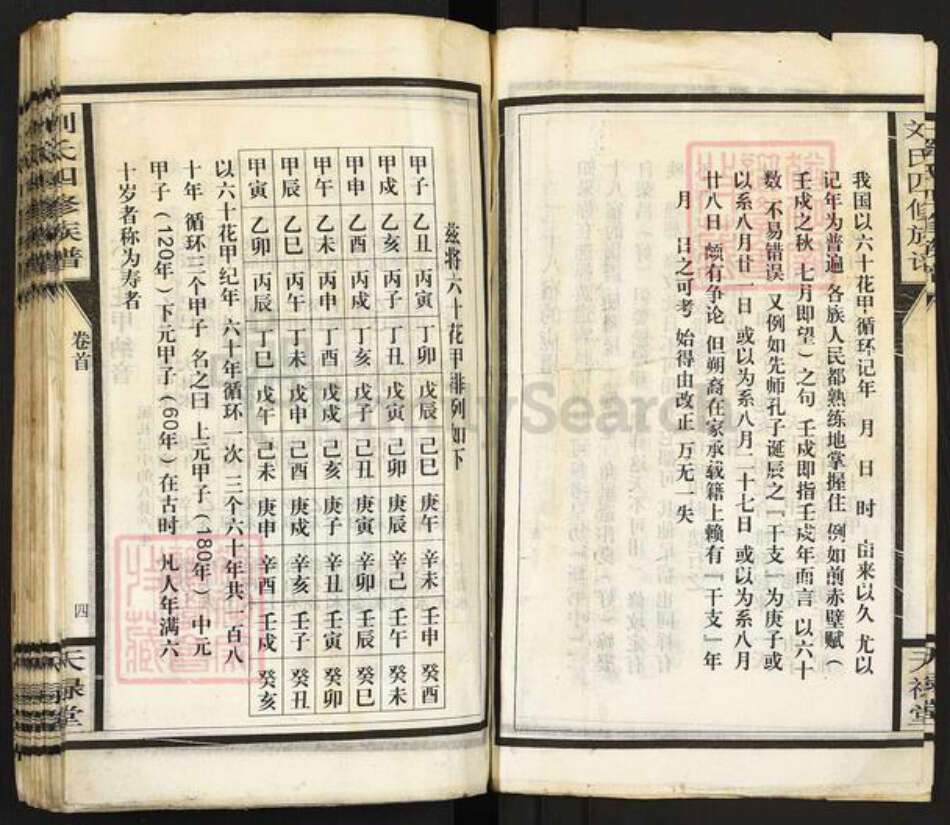 刘氏四修族谱
天禄堂
我国以六十花甲循环记年 月 日 时 由来以久 尤以
记年为普遍 各族人民都熟练地掌握住 例如前赤壁赋（
壬戌之秋 七月即望）之句 壬戌即指壬戌年而言 以六十
数 不易错误 又例如先师孔子诞辰之『干支』为庚子或
以系八月廿一日 或以为系八月二十七日 或以为系八月
廿八日 颇有争论 但朔裔在家承载籍上赖有『干支』年
月 日之可考 始得由改正 万无一失
兹将六十花甲排列如下
甲子 乙丑 丙寅 丁卯 戊辰 己巳 庚午 辛未 壬申 癸酉
甲戌 乙亥 丙子 丁丑 戊寅 己卯 庚辰 辛己 壬午 癸未
甲申 乙酉 丙戌 丁亥 戊子 己丑 庚寅 辛卯 壬辰 癸巳
甲午 乙未 丙申 丁酉 戊戌 己亥 庚子 辛丑 壬寅 癸卯
甲辰 乙巳 丙午 丁未 戊申 己酉 庚戌 辛亥 壬子 癸丑
甲寅 乙卯 丙辰 丁巳 戊午 己未 庚申 辛酉 壬戌 癸亥
以六十花甲纪年 六十年循环一次 三个六十年共一百八
十年 循环三个甲子 名之曰 上元甲子（180年） 中元
甲子（120年）下元甲子（60年）在古时 凡人年满六
十岁者称为寿者
刘氏四修族谱
卷首
四
天禄堂
FamilySearch